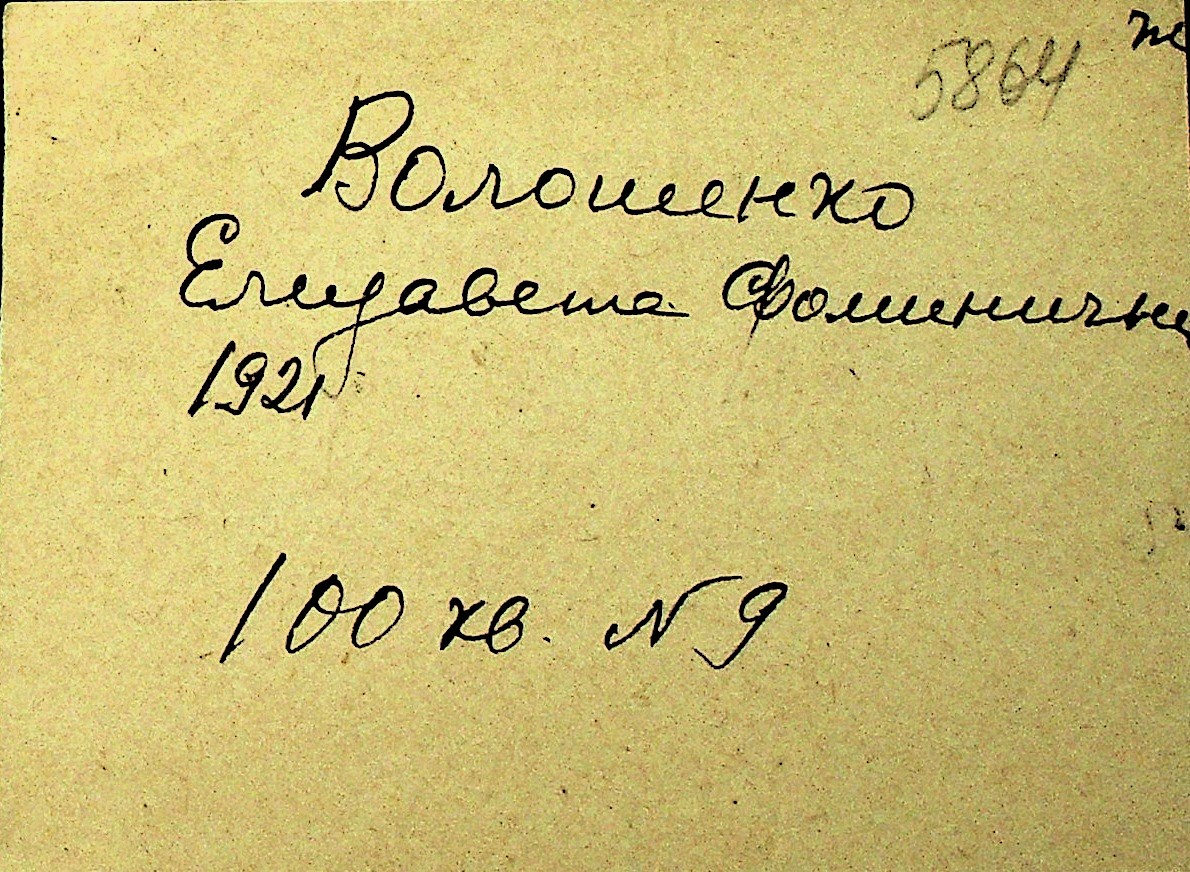 5864
Волошенко
Елизавета Фоминична
1921
100 кв. N 9